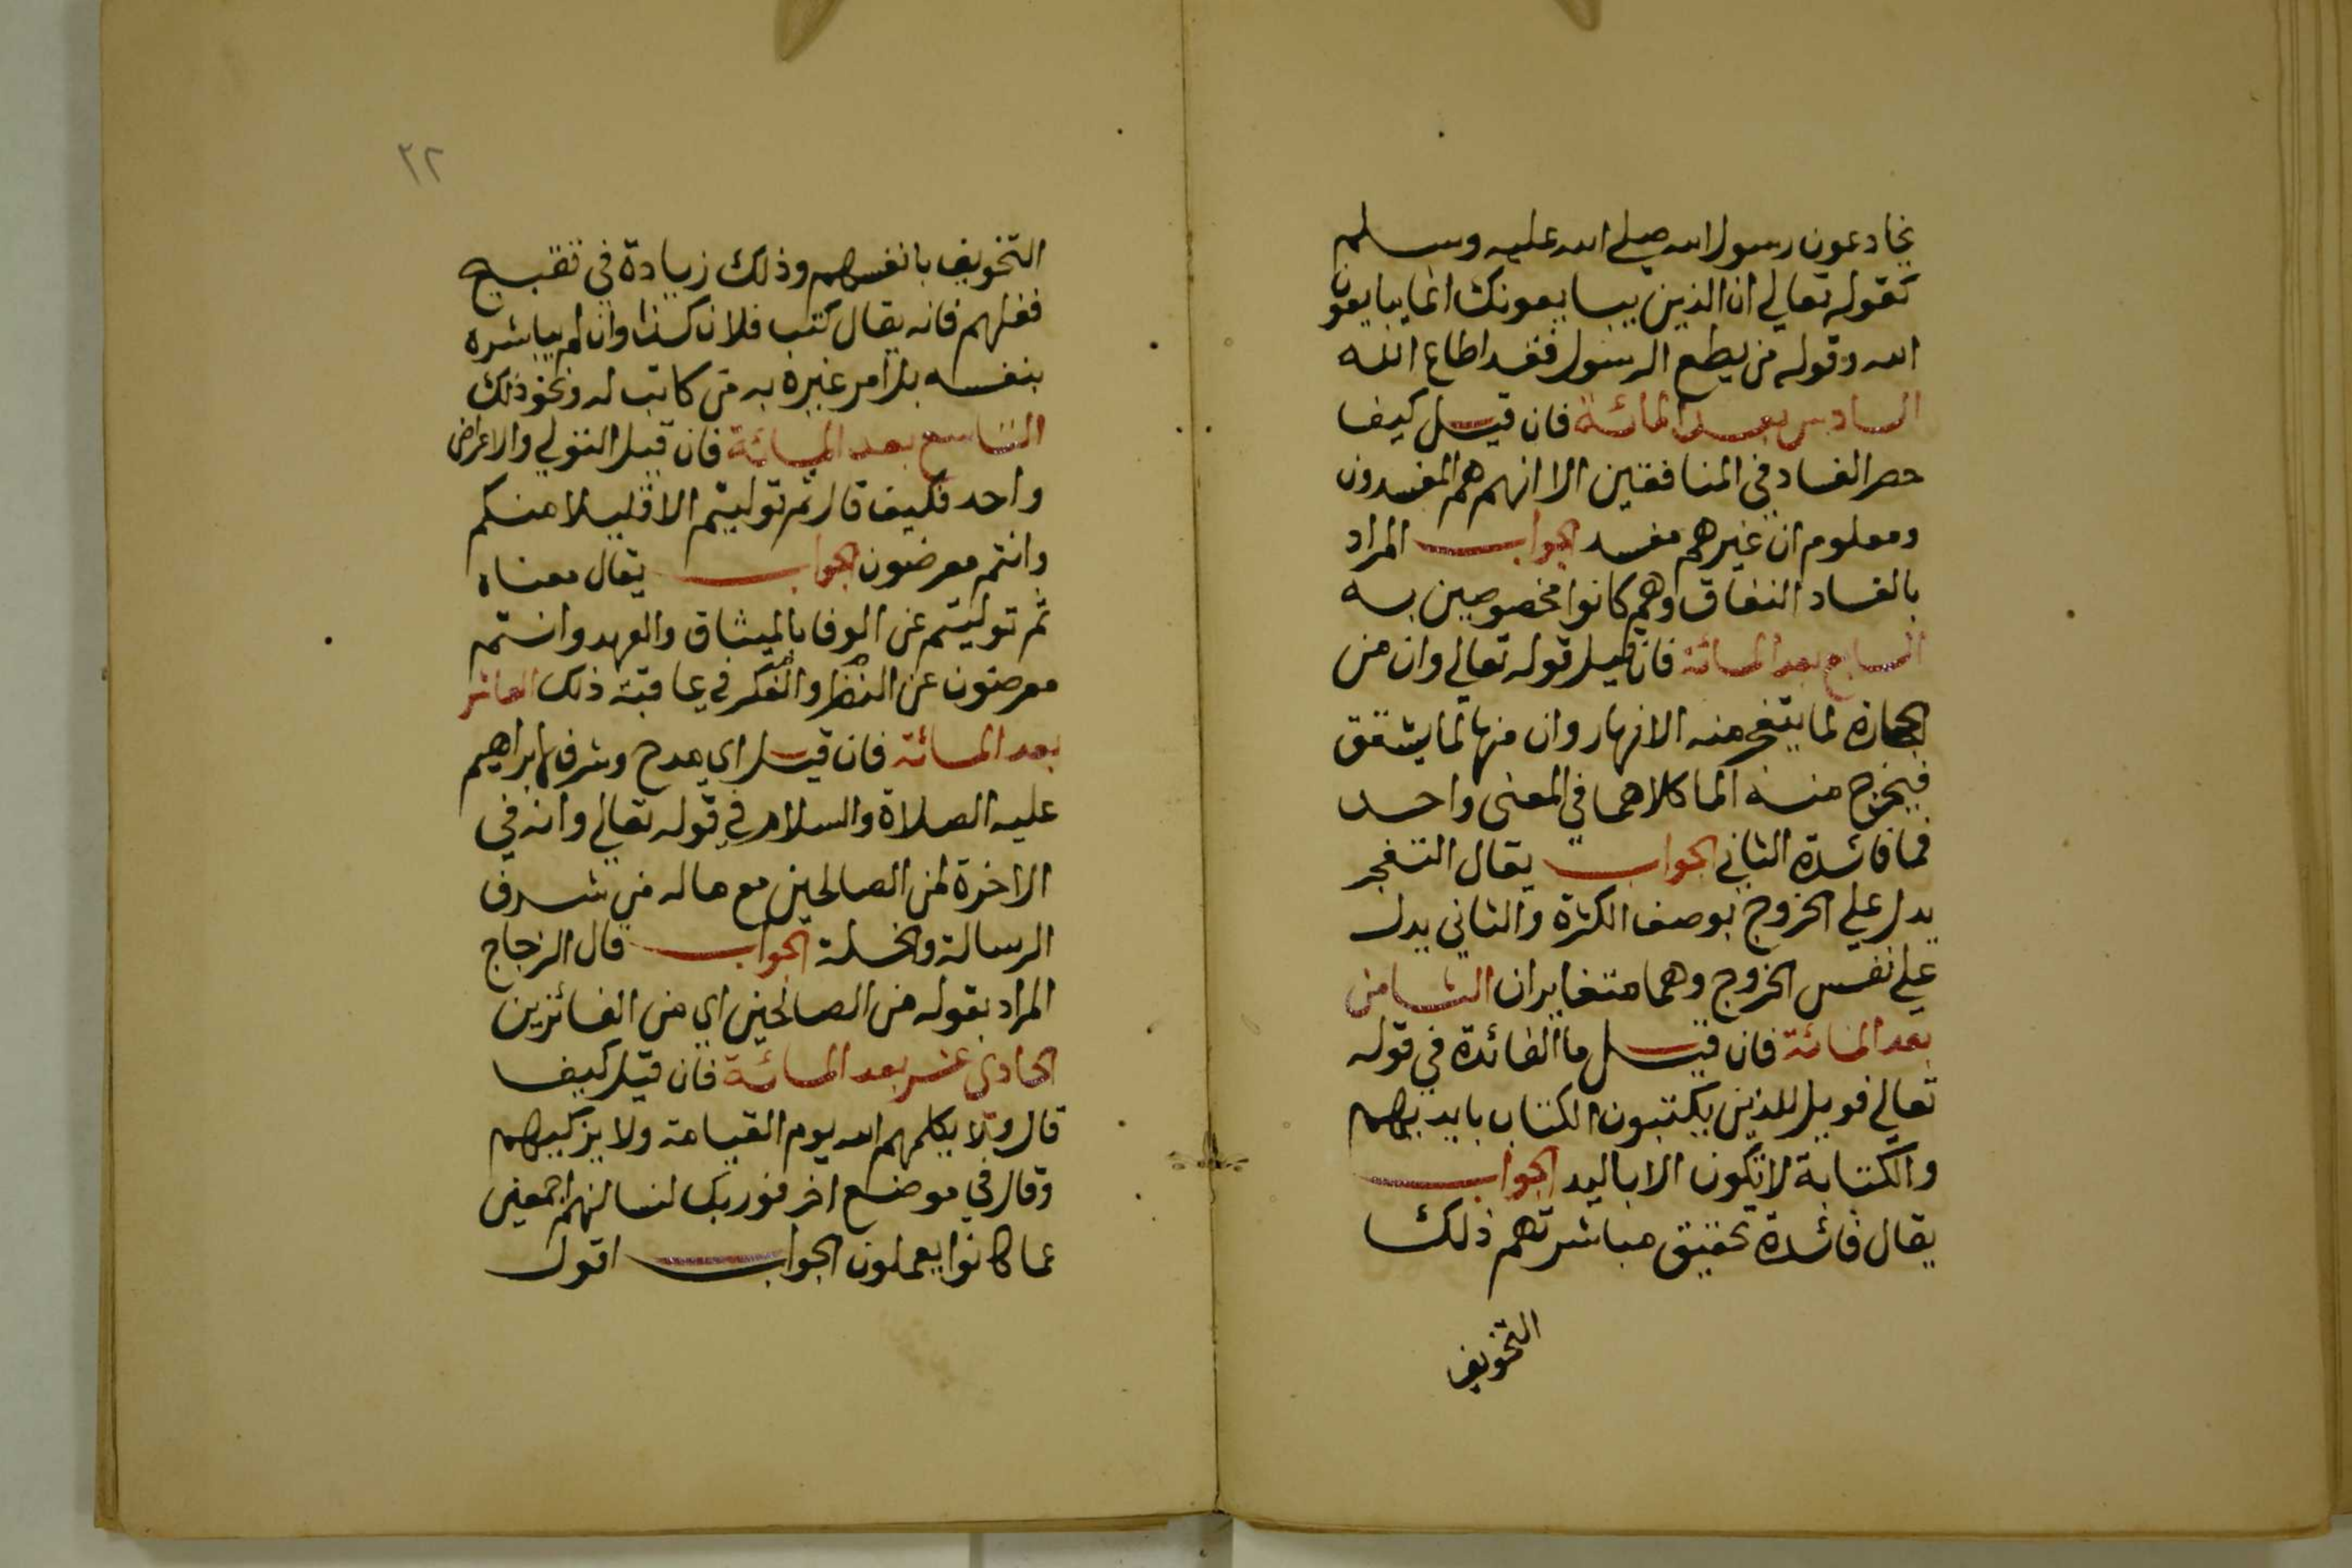 يخادعون رسول الله صلى الله عليه وسلم
كقوله تعالى ان الذين يبايعونك انما يبايعون
الله وقوله من يطع الرسول فقد اطاع الله
السادس بعد المائة فان قيل كيف
حصر الفساد في المنافقين الا انهم هم المفسدون
ومعلوم ان غيرهم مفسد الجواب المراد
بالفساد النفاق وهم كانوا مخصوصين به
السابع بعد المائة فان قيل قوله تعالى وان من
الحجارة لما يتفجر منه الانهار وان منها لما يشقق
فيخرج منه الما كلاهما في المعنى واحد
فما فائدة الثاني الجواب يقال التفجر
يدل على الخروج بوصف الكثرة والثاني يدل
على نفس الخروج وهما متغايران الثامن
بعد المائة فان قيل ما الفائدة في قوله
تعالى فويل للذين يكتبون الكتاب بايديهم
والكتابة لا تكون الا باليد الجواب
يقال فائدة تحقيق مباشرتهم ذلك
التخويف
٢٢
التخويف بانفسهم وذلك زيادة في تقبيح
فعلهم فانه يقال كتب فلان كذا وان لم يباشره
بنفسه بل امر غيره به من كاتب له ونحو ذلك
التاسع بعد المائة فان قيل التولي والاعراض
واحد فكيف قال ثم توليتم الا قليلا منكم
وانتم معرضون الجواب يقال معناه
ثم توليتم عن الوفا بالميثاق والعهد وانتم
معرضون عن النظر والفكر في عاقبة ذلك العاشر
بعد المائة فان قيل اي مدح وشرف لابراهيم
عليه الصلاة والسلام في قوله تعالى وانه في
الاخرة لمن الصالحين مع ماله من شرف
الرسالة والخلة الجواب قال الزجاج
المراد بقوله من الصالحين اي من الفائزين
الحادي عشر بعد المائة فان قيل كيف
قال ولا يكلمهم الله يوم القيامة ولا يزكيهم
وقال في موضع اخر فوربك لنسالنهم اجمعين
عما كانوا يعملون الجواب اقول